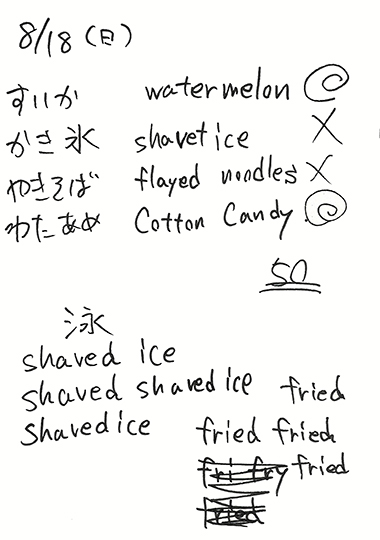 8/18(日)
すいか watermelon ◎
かき氷 shavet ice ×
やきそば flayed noodles ×
わたあめ Cotton Candy ◎
50
泳
shaved ice
shaved shaved ice fried
Shaved ice fried fried
fri fry fried
fried